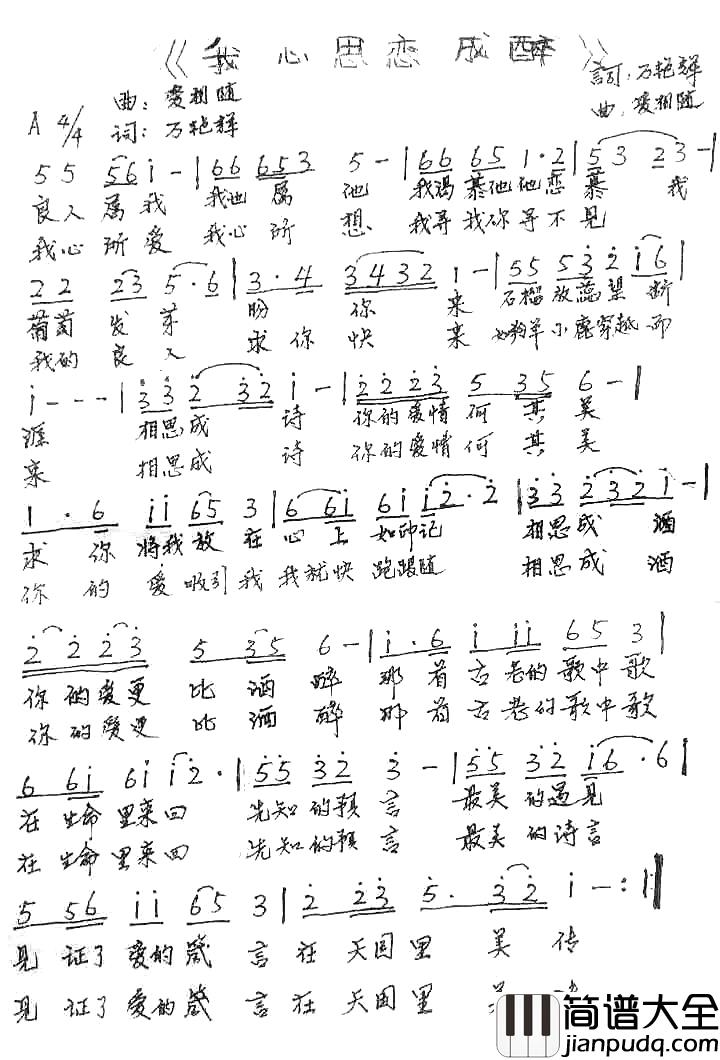 《我心思恋成醉》
曲：爱相随
词：万艳辉
詞：万艳辉
曲：爱相随
A 4/4
5 5 56 i - | 66 653 5 - | 66 65 1·2 | 53 23 - |
良人属我 我也属 他 我渴慕他他恋慕 我
我心所爱 我心所 想 我寻我你寻不见
22 23 5·6 | 3·4 3432 1 - | 55 532 i6 |
葡萄发芽 盼 你 来 石榴放蕊望断
我的良人 求你 快 来 如羚羊小鹿穿越而
i - - - | 332 32 i - | 2223 5 35 6 - |
涯 相思成 诗 你的爱情何其美
来 相思成 诗 你的爱情何其美
1·6 ii 65 3 | 6 6i 6i i2·2 | 33 232 i - |
求你将我放在心上如印记 相思成酒
你的爱吸引我我就快跑跟随 相思成酒
2 2 2 3 5 35 6 - | i·6 i ii 65 3 |
你的爱更比酒醉 那首古老的歌中歌
你的爱更比酒醉 那首古老的歌中歌
6 6i 6i i2· | 55 32 3 - | 55 32 i6·6 |
在生命里来回 先知的预言 最美的遇见
在生命里来回 先知的预言 最美的诗言
5 56 ii 65 3 | 2 23 5· 32 i - :||
见证了爱的箴言在天国里 美传
见证了爱的箴言在天国里
简谱大全
jianpudq.com